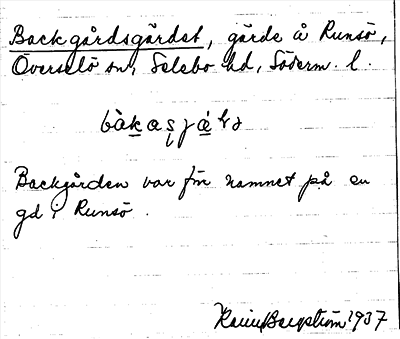 Backgårdsgärdet, gärde å Runsö,
Överselö sn, Selebo hd, Söderm. l.
Backgården var förr namnet på en
gd i Runsö.
Bergström 1937